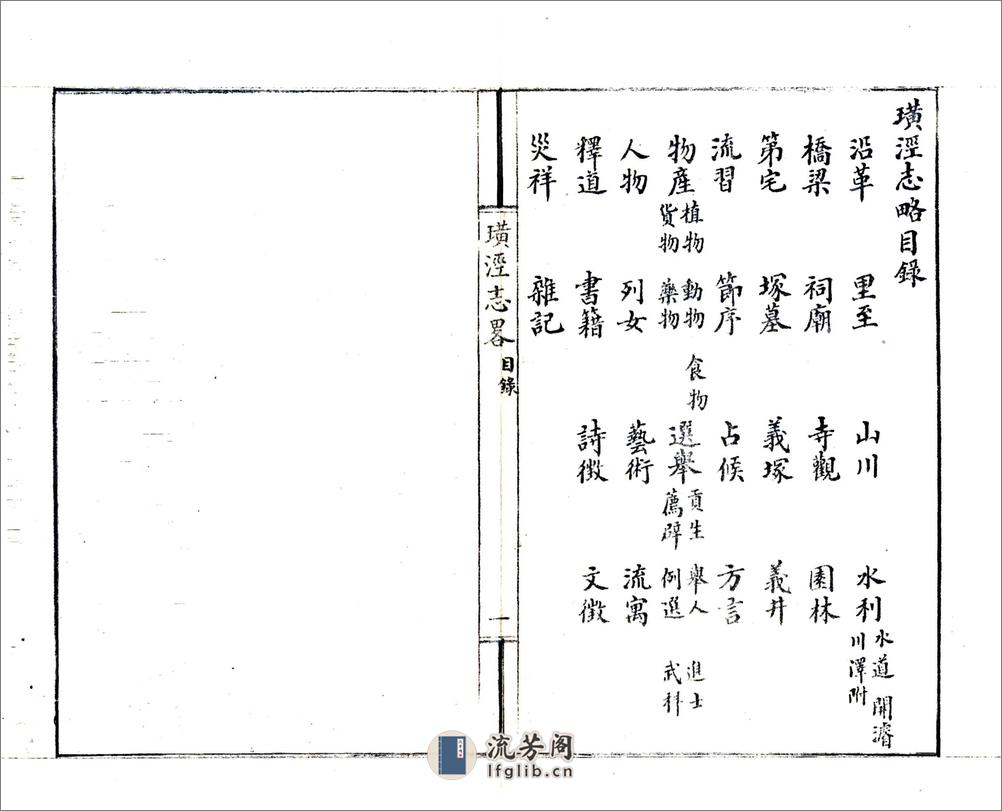 璜涇志略目錄
沿革 里至 山川 水利 水道 開濬 川澤附
橋梁 祠廟 寺觀 園林
第宅 塚墓 義塚 義井
流習 節序 占候 方言
物產 植物 動物 食物 貨物 藥物 選舉 貢生 舉人 進士 薦辟 例選 武科
人物 列女 藝術 流寓
釋道 書籍 詩徵 文徵
災祥 雜記
璜涇志畧 目錄 一
流芳阁
lfglib.cn